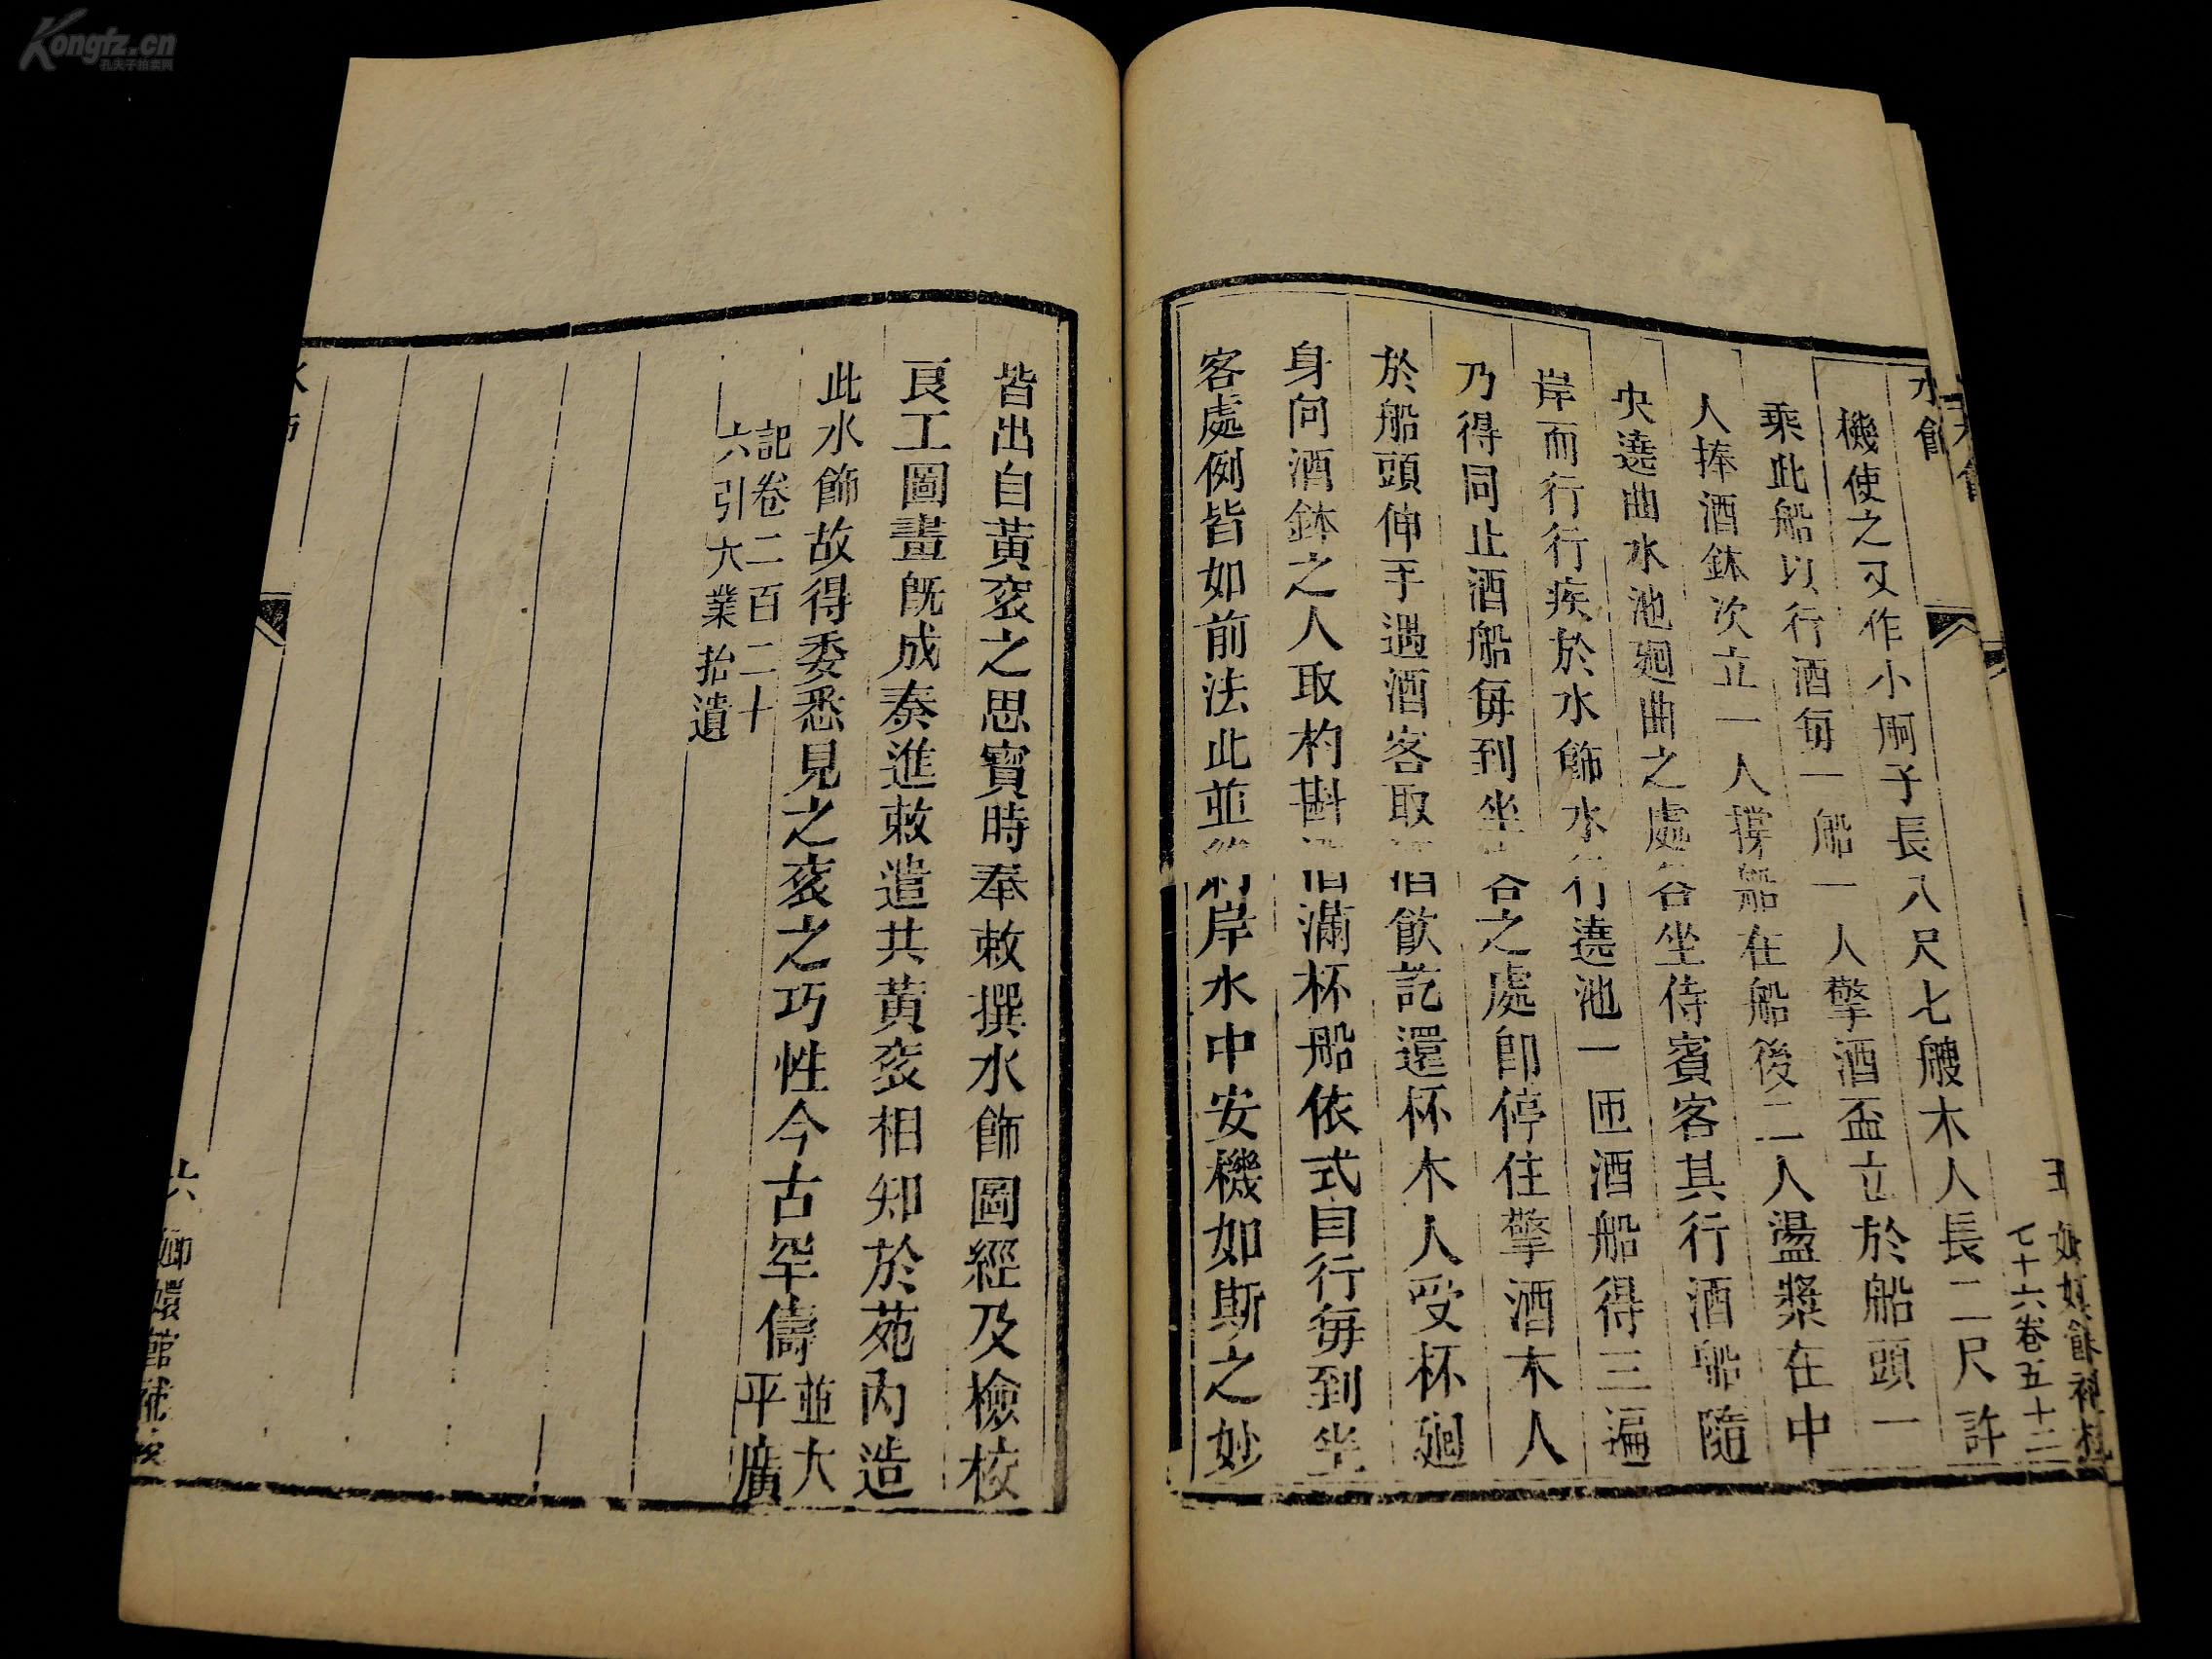 Kongfz.cn
孔夫子拍卖网
水飾
七十六卷五十二
機使之又作小舸子長八尺七艘木人長二尺許
乘此船以行酒每一船一人擎酒盃立於船頭一
人捧酒鉢次立一人撑船在船後二人盪槳在中
央遶曲水池廻曲之處各坐侍賓客其行酒船隨
岸而行行疾於水飾水行遶池一匝酒船得三遍
乃得同止酒船每到坐客之處卽停住擎酒木人
於船頭伸手遇酒客取酒飲訖還杯木人受杯廻
身向酒鉢之人取杓斟酒滿杯船依式自行每到坐
客處例皆如前法此並約岸水中安機如斯之妙
皆出自黃衮之思寶時奉敕撰水飾圖經及檢校
良工圖畫旣成奏進敕遣共黃衮相知於苑內造
此水飾故得委悉見之衮之巧性今古罕儔並大平廣
記卷二百二十
六引大業拾遺
六 嫏嬛館補校